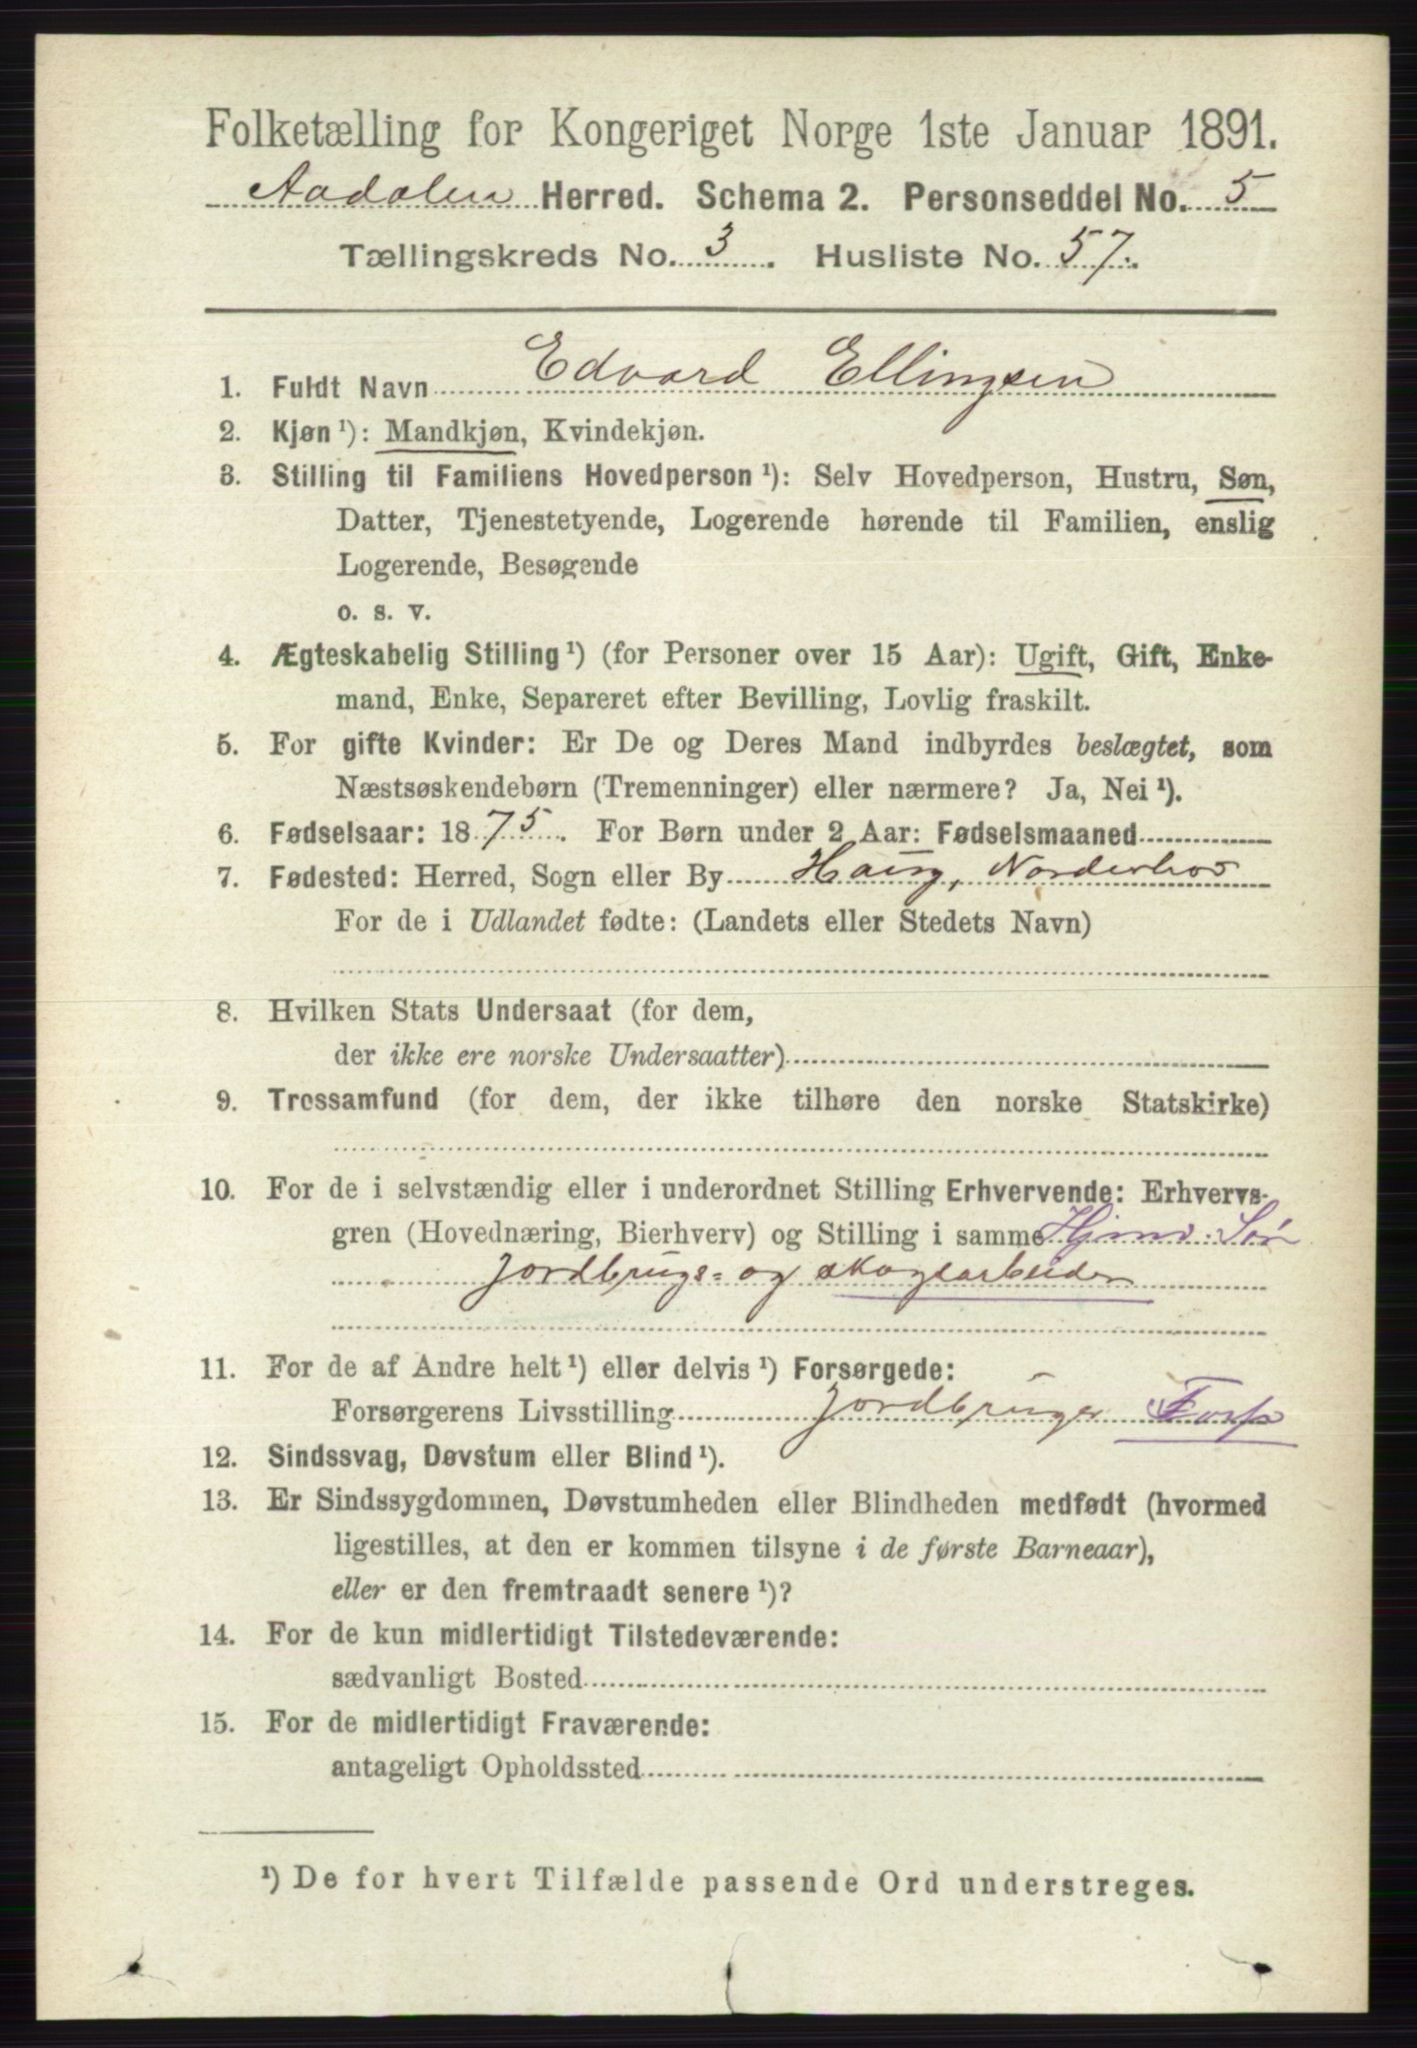 Folketælling for Kongeriget Norge 1ste Januar 1891.
Aadalen Herred. Schema 2. Personseddel No. 5
Tællingskreds No. 3. Husliste No. 57.
1. Fuldt Navn Edvard Ellingsen
2. Kjøn ¹): Mandkjøn, Kvindekjøn.
3. Stilling til Familiens Hovedperson ¹): Selv Hovedperson, Hustru, Søn,
Datter, Tjenestetyende, Logerende hørende til Familien, enslig
Logerende, Besøgende
o. s. v.
4. Ægteskabelig Stilling ¹) (for Personer over 15 Aar): Ugift, Gift, Enke-
mand, Enke, Separeret efter Bevilling, Lovlig fraskilt.
5. For gifte Kvinder: Er De og Deres Mand indbyrdes beslægtet, som
Næstsøskendebørn (Tremenninger) eller nærmere? Ja, Nei ¹).
6. Fødselsaar: 1875. For Børn under 2 Aar: Fødselsmaaned
7. Fødested: Herred, Sogn eller By Haug, Norderhov
For de i Udlandet fødte: (Landets eller Stedets Navn)
8. Hvilken Stats Undersaat (for dem,
der ikke ere norske Undersaatter)
9. Trossamfund (for dem, der ikke tilhøre den norske Statskirke)
10. For de i selvstændig eller i underordnet Stilling Erhvervende: Erhvervs-
gren (Hovednæring, Bierhverv) og Stilling i samme Hjmv. Søn
Jordbrugs- og skogsarbeider
11. For de af Andre helt ¹) eller delvis ¹) Forsørgede:
Forsørgerens Livsstilling Jordbruger Fors
12. Sindssvag, Døvstum eller Blind ¹).
13. Er Sindssygdommen, Døvstumheden eller Blindheden medfødt (hvormed
ligestilles, at den er kommen tilsyne i de første Barneaar),
eller er den fremtraadt senere ¹)?
14. For de kun midlertidigt Tilstedeværende:
sædvanligt Bosted
15. For de midlertidigt Fraværende:
antageligt Opholdssted
¹) De for hvert Tilfælde passende Ord understreges.